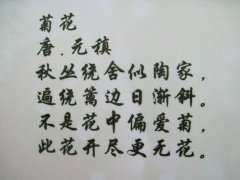 菊花
唐.元稹
秋丛绕舍似陶家，
遍绕篱边日渐斜。
不是花中偏爱菊，
此花开尽更无花。